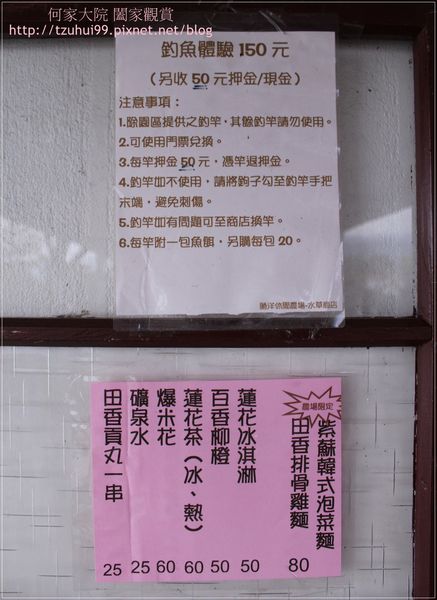 何家大院 闔家觀賞
http://tzuhui99.pixnet.net/blog
釣魚體驗 150 元
（另收 50 元押金/現金）
注意事項：
1.除園區提供之釣竿，其餘釣竿請勿使用。
2.可使用門票兌換。
3.每竿押金 50 元，憑竿退押金。
4.釣竿如不使用，請將鉤子勾至釣竿手把
末端，避免刺傷。
5.釣竿如有問題可至商店換竿。
6.每竿附一包魚餌，另購每包 20。
勝洋休閒農場-水草商店
農場限定
紫蘇韓式泡菜麵
田香排骨雞麵
80
蓮花冰淇淋
50
百香柳橙
50
蓮花茶（冰、熱）
60
爆米花
60
礦泉水
25
田香貢丸一串
25